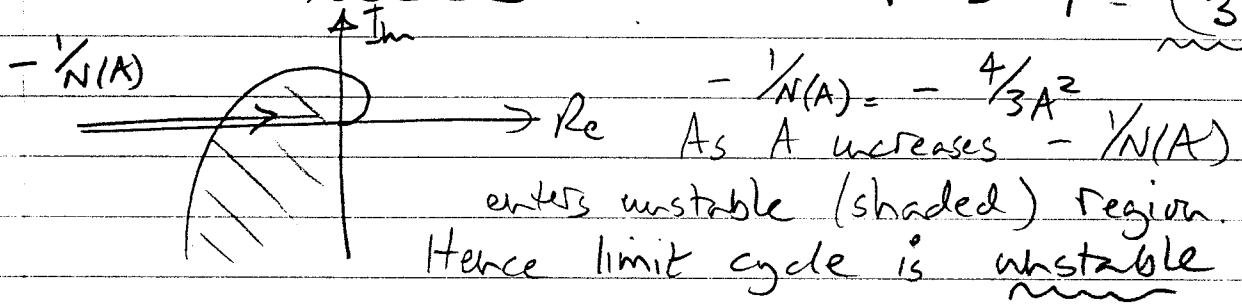 = 3
Im
- 1/N(A)
- 1/N(A) = - 4/3A²
Re As A increases - 1/N(A)
enters unstable (shaded) region.
Hence limit cycle is unstable